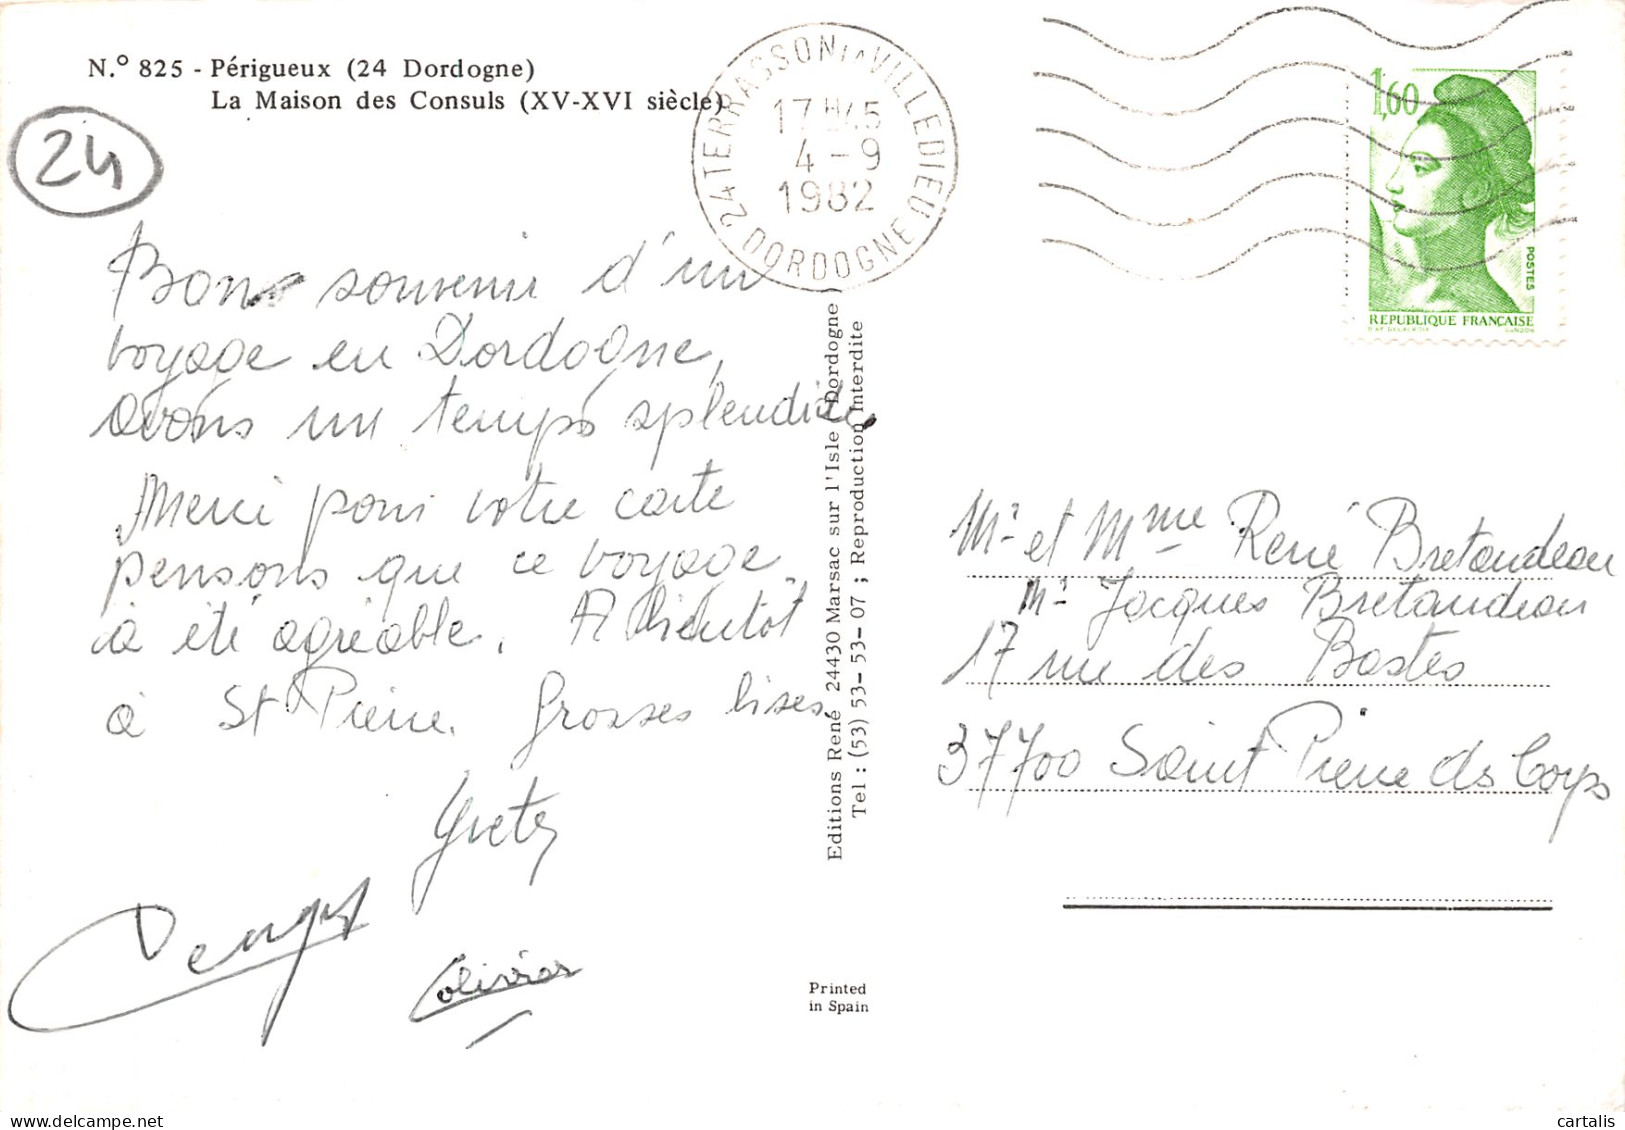 N.° 825 - Périgueux (24 Dordogne)
La Maison des Consuls (XV-XVI siècle)
24
24 TERRASSON LA VILLEDIEU
17H45
4 - 9
1982
DORDOGNE
1,60
POSTES
REPUBLIQUE FRANÇAISE
Bon souvenir d'un
voyage en Dordogne,
avons un temps splendide.
Merci pour votre carte
pensons que ce voyage
a été agréable. A bientôt
à St Pierre. Grosses bises
Olivier
Editions René 24430 Marsac sur l'Isle Dordogne
Tel : (53) 53-53-07 ; Reproduction Interdite
Mr et Mme René Bretaudeau
Mr Jacques Bretaudeau
17 rue des Bastes
37700 Saint Pierre des Corps
Printed
in Spain
cartalis